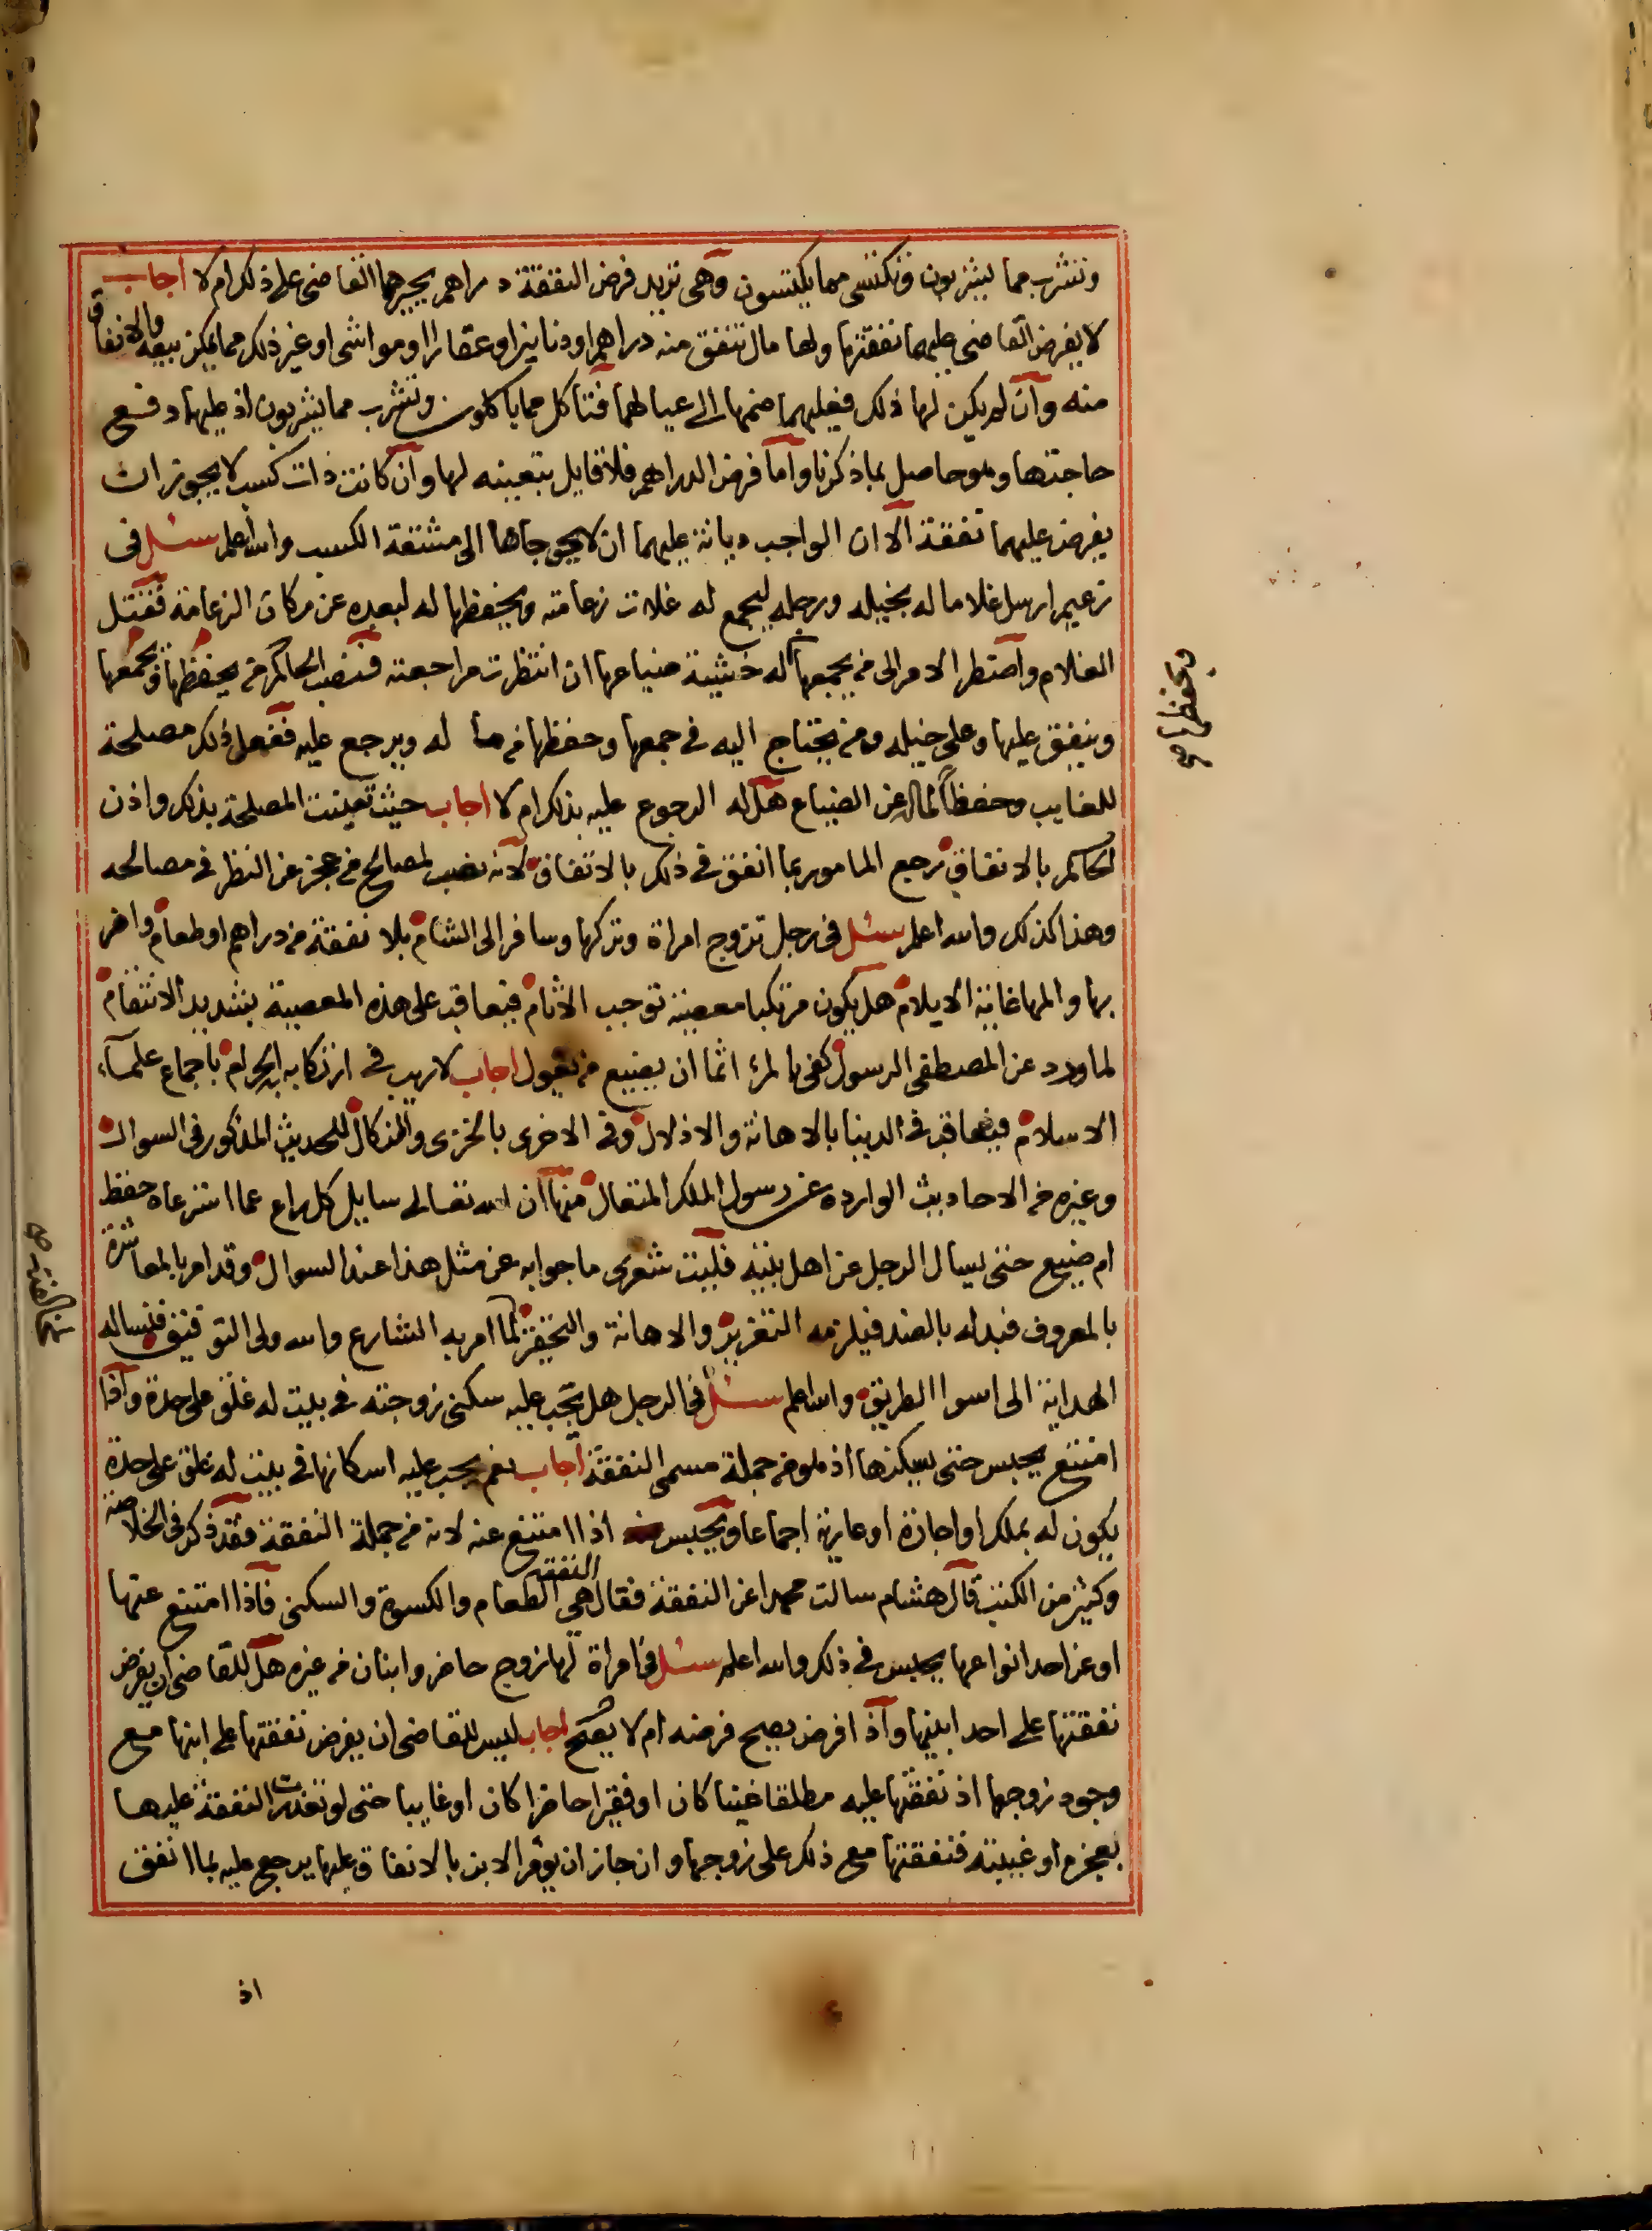 وتشرب مما يشربون وتكتسى مما يكتسون وهى تريد فرض النفقة دراهم يجبرهما القاضى على ذلك ام لا اجاب
لا يفرض القاضى عليهما نفقتها ولها مال تنفق منه دراهم او دنانير او عقارا او مواشى او غير ذلك مما يمكن بيعه والانفاق
منه وان لم يكن لها ذلك فعليهما ضمها الى عيالهما فتاكل مما ياكلون وتشرب مما يشربون اذ عليهما دفع
حاجتها وهو حاصل بما ذكرنا واما فرض الدراهم فلا قايل بتعينه لها وان كانت ذات كسب لا يجوز ان
يفرض عليهما نفقة الا ان الواجب ديانة عليهما ان لا يحوجاها الى مشقة الكسب والله اعلم سئل فى
زعيم ارسل غلاما له بخيله ورجله ليجمع له غلات زعامته ويحفظها له لبعده عن مكان الزعامة فقتل
الغلام واضطر الامر الى من يجمعها له خشية ضياعها ان انتظرت مراجعته فنصب الحاكم من يحفظها ويجمعها
وينفق عليها وعلى خيله ومن يحتاج اليه فى جمعها وحفظها من ماله ويرجع عليه ففعل ذلك مصلحة
للغايب وحفظا لماله عن الضياع هل له الرجوع عليه بذلك ام لا اجاب حيث تعينت المصلحة بذلك واذن
الحاكم بالانفاق يرجع المامور بما انفق فى ذلك بالاتفاق لانه نصب لمصالح من عجز عن النظر فى مصالحه
وهذا كذلك والله اعلم سئل فى رجل تزوج امراة وتركها وسافر الى الشام بلا نفقة من دراهم او طعام واضر
بها والمها غاية الايلام هل يكون مرتكبا معصية توجب الاثام فيعاقب على هذه المعصية بشديد الانتقام
لما ورد عن المصطفى الرسول كفى بالمرء اثما ان يضيع من يعول اجاب لا ريب فى ارتكابه الحرام باجماع علماء
الاسلام فيعاقب فى الدينا بالاهانة والاذلال وفى الاخرى بالخزى والنكال للحديث المذكور فى السوال
وغيره من الاحاديث الوارده عن رسول الملك المتعال منها ان الله تعالى سايل كل راع عما استرعاه حفظ
ام ضيع حتى يسال الرجل عن اهل بيته فليت شعرى ما جوابه عن مثل هذا عند السوال وقد امر بالمعاشرة
بالمعروف فبدله بالضد فيلزمه التعزير والاهانة والتحقير لما امر به الشارع والله ولى التوفيق فنساله
الهداية الى اسوا الطريق والله اعلم سئل فى الرجل هل يجب عليه سكنى زوجته فى بيت له غلق على حدة واذا
امتنع يحبس حتى يسكنها اذ هو من جملة مسمى النفقة اجاب نعم يجب عليه اسكانها فى بيت له غلق على حدة
يكون له بملك او اجارة او عارية اجماعا ويحبس اذا امتنع عنه لانه من جملة النفقة فقد ذكر فى الخلاصة
وكثير من الكتب قال هشام سالت محمدا عن النفقة فقال النفقة هى الطعام والكسوة والسكنى فاذا امتنع عنها
او عن احد انواعها يحبس فى ذلك والله اعلم سئل فى امراة لها زوج حاضر وابنان من غيره هل للقاضى ان يفرض
نفقتها على احد ابنيها واذا فرض يصح فرضه ام لا يصح اجاب ليس للقاضى ان يفرض نفقتها على ابنها مع
وجود زوجها اذ نفقتها عليه مطلقا غنيا كان او فقيرا حاضرا كان او غايبا حتى لو تعذرت النفقة عليها
بعجزه او غيبته فنفقتها مع ذلك على زوجها وان جاز ان يؤمر الابن بالانفاق عليها يرجع عليه بما انفق
اذ
ويحفظها صح